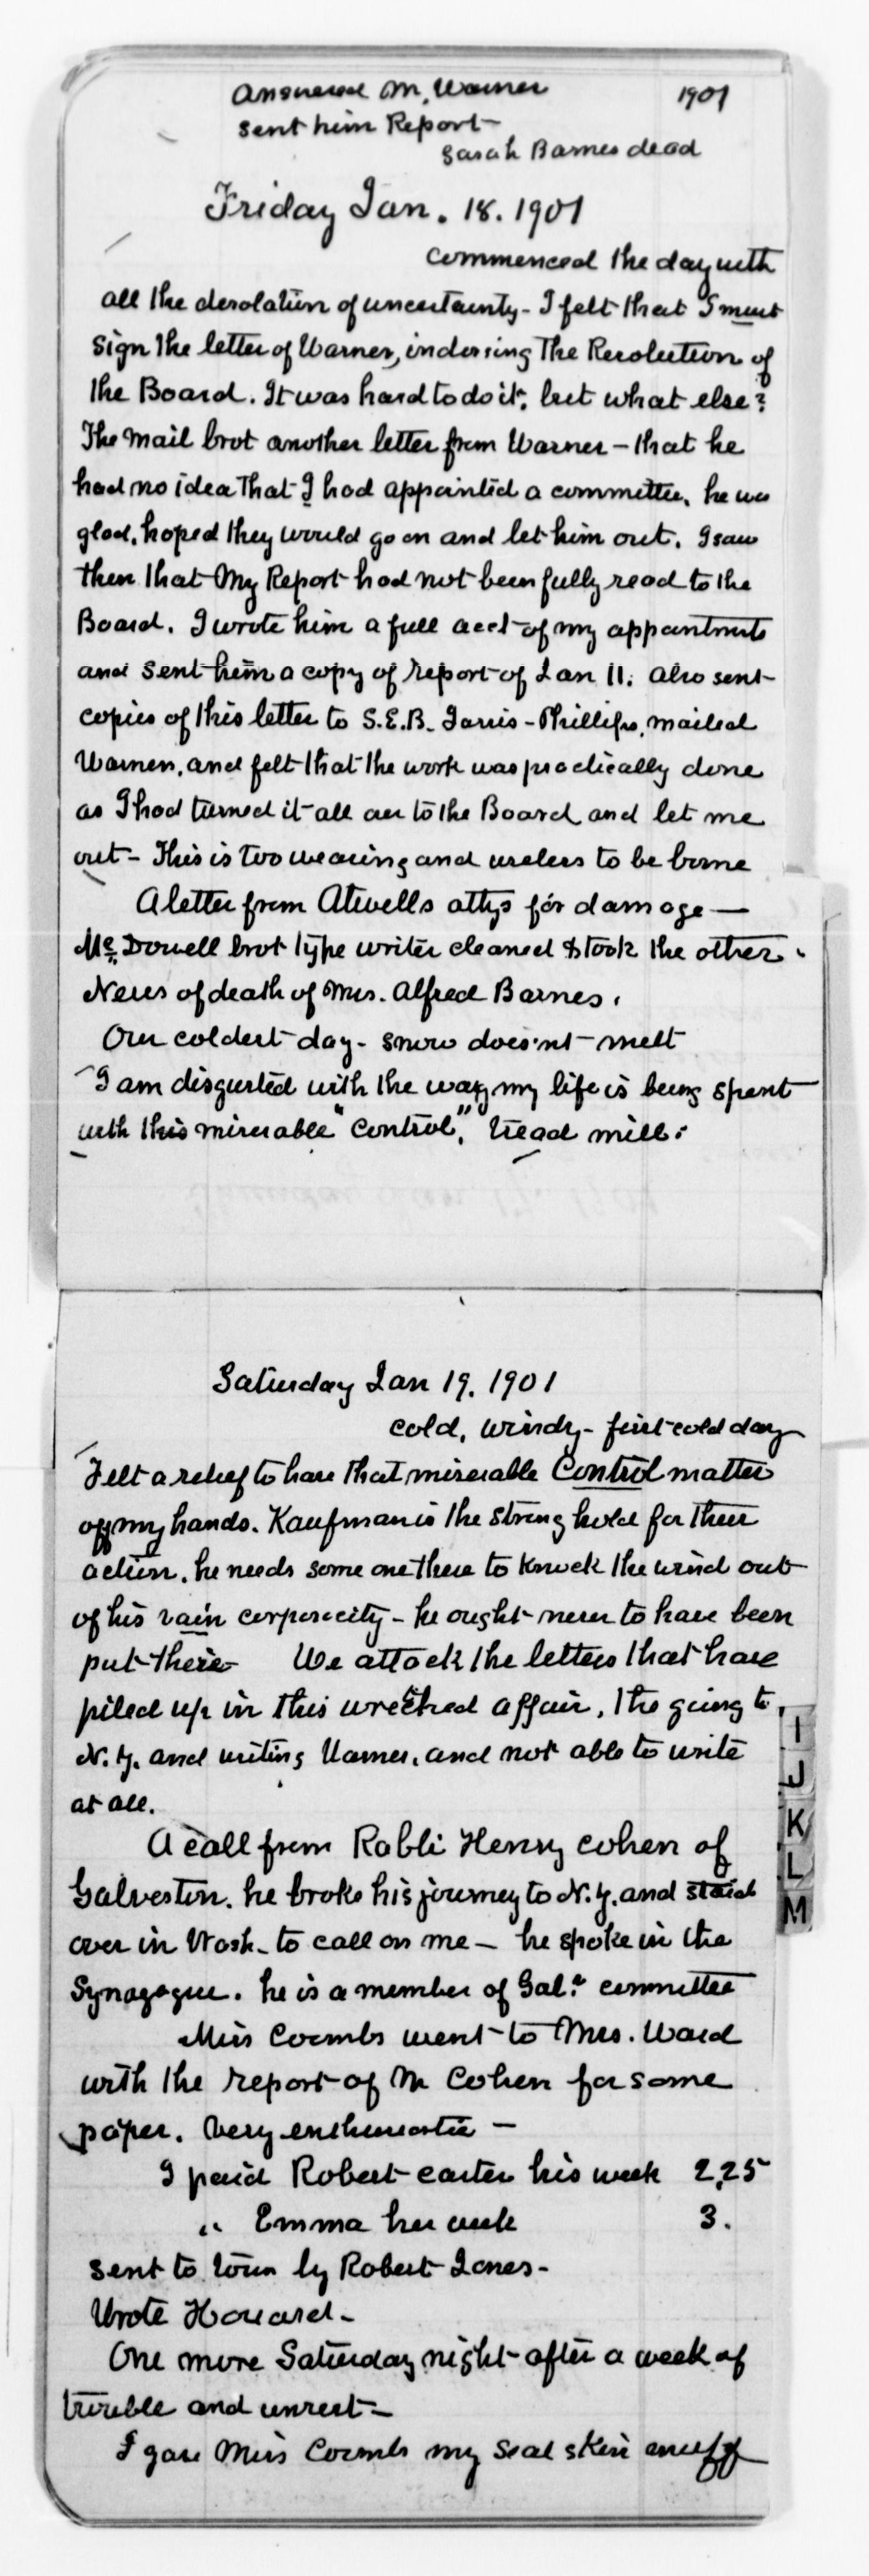 Answered M. Warner 1901
sent him Report -
Sarah Barnes dead
Friday Jan. 18. 1901
commenced the day with
all the desolation of uncertainty - I felt that I must
sign the letter of Warner, indorsing The Resolution of
the Board. It was hard to do it, but what else?
The mail brot another letter from Warner - that he
had no idea that I had appointed a committee, he was
glad, hoped they would go on and let him out. I saw
then that My Report had not been fully read to the
Board. I wrote him a full acct of my appointments
and sent him a copy of report of Jan 11. Also sent
copies of this letter to S.E.B. Jarvis - Phillips, mailed
Warner, and felt that the work was practically done
as I had turned it all over to the Board and let me
out - This is too wearing and useless to be borne
A letter from Atwells attys for damage —
McDowell brot type writer cleaned & took the other.
News of death of Mrs. Alfred Barnes.
Our coldest day - snow does'nt melt
I am disgusted with the way my life is being spent
with this miserable "control", tread mill.
Saturday Jan 19. 1901
cold, windy - first cold day
Felt a relief to have that miserable Control matter
off my hands. Kaufman is the strong hold for their
action, he needs some one there to knock the wind out
of his vain corporocity - he ought never to have been
put there We attack the letters that have
piled up in this wretched affair, the going to
N.Y. and writing Warner, and not able to write
at all.
A call from Rabbi Henry Cohen of
Galveston. he broke his journey to N.Y. and staid
over in Wash. to call on me - he spoke in the
Synagogue. he is a member of Gal. committee
Miss Coombs went to Mrs. Ward
with the report of M Cohen for some
paper. Very enthusiastic -
I paid Robert carter his week 2.25
" Emma her week 3.
sent to town by Robert Jones -
Wrote Howard -
One more Saturday night after a week of
trouble and unrest -
I gave Miss Coombs my seal skin muff